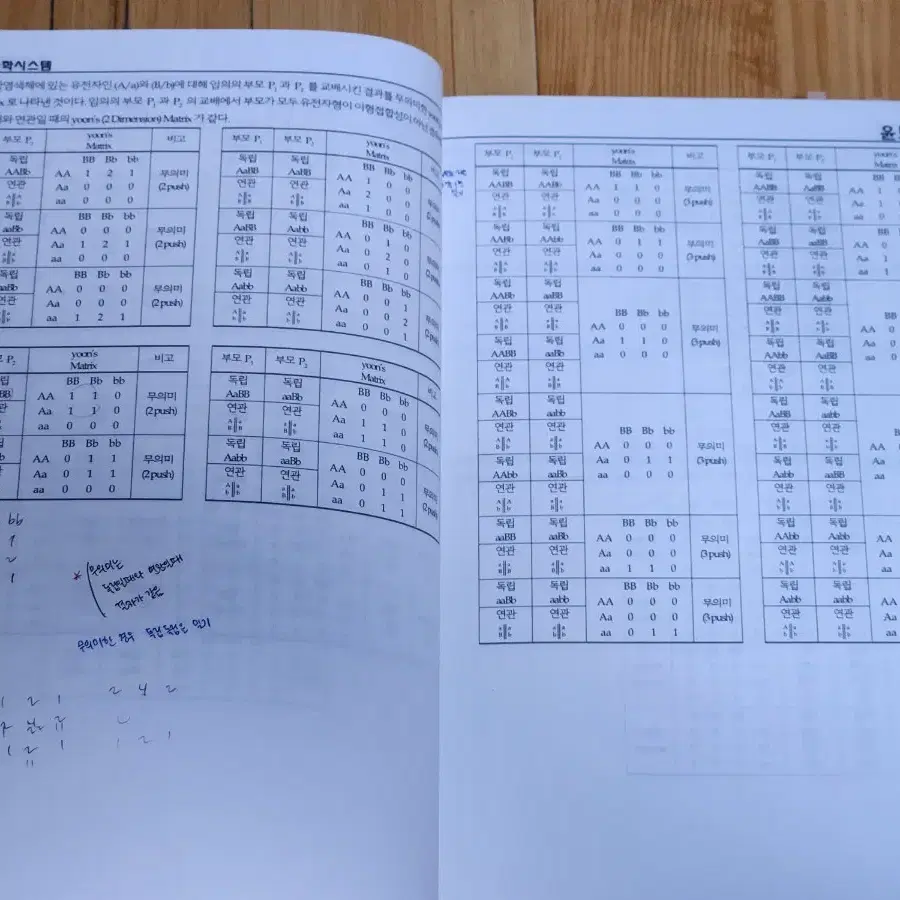 학시스템
염색체에 있는 유전자인 (A/a)와 (B/b)에 대해 임의의 부모 P₁ 과 P₂ 를 교배시킨 결과를 무의미한
로 나타낸 것이다. 임의의 부모 P₁ 과 P₂ 의 교배에서 부모가 모두 유전자형이 이형접합성이
와 연관일 때의 yoon's (2 Dimension) Matrix 가 같다.
부모 P₂ yoon's Matrix 비고
독립 BB Bb bb
AABb AA 1 2 1 무의미
연관 Aa 0 0 0 (2push)
aa 0 0 0
독립 BB Bb bb
aaBb AA 0 0 0 무의미
연관 Aa 1 2 1 (2push)
aa 0 0 0
독립 BB Bb bb
aaBb AA 0 0 0 무의미
연관 Aa 0 0 0 (2push)
aa 1 2 1
부모 P₁ 부모 P₂ yoon's Matrix
독립 독립 BB Bb bb
AaBB AaBB AA 1 0 0
연관 연관 Aa 2 0 0
aa 1 0 0
독립 독립 BB Bb bb
AaBB Aabb AA 0 1 0
연관 연관 Aa 0 2 0
aa 0 1 0
독립 독립 BB Bb bb
Aabb Aabb AA 0 0 1
연관 연관 Aa 0 0 2
aa 0 0 1
P₂ yoon's Matrix 비고
BB Bb bb
AA 1 1 0 무의미
Aa 1 1 0 (2push)
aa 0 0 0
BB Bb bb
AA 0 1 1 무의미
Aa 0 1 1 (2push)
aa 0 0 0
부모 P₁ 부모 P₂ yoon's Matrix 비고
독립 독립 BB Bb bb
AaBB aaBb AA 0 0 0
연관 연관 Aa 1 1 0
aa 1 1 0
독립 독립 BB Bb bb
Aabb aaBb AA 0 0 0
연관 연관 Aa 0 1 1
aa 0 1 1
bb
1
2
1
* 무의미는
독립일때와 연관일때
결과가 같음
1 2 1 2 4 2
1 2 1 1 2 1
윤
부모 P₁ 부모 P₂ yoon's Matrix 비고
독립 독립 BB Bb bb
AABB AABb AA 1 1 0 무의미
연관 연관 Aa 0 0 0 (3push)
aa 0 0 0
독립 독립 BB Bb bb
AABb AAbb AA 0 1 1 무의미
연관 연관 Aa 0 0 0 (3push)
aa 0 0 0
독립 독립
AABb aaBB
연관 연관 BB Bb bb
AA 0 0 0 무의미
독립 독립 Aa 1 1 0 (3push)
AABB aaBb aa 0 0 0
연관 연관
독립 독립
AABb aabb
연관 연관 BB Bb bb
AA 0 0 0 무의미
독립 독립 Aa 0 1 1 (3push)
AAbb aaBb aa 0 0 0
연관 연관
독립 독립 BB Bb bb
aaBB aaBb AA 0 0 0 무의미
연관 연관 Aa 0 0 0 (3push)
aa 1 1 0
독립 독립 BB Bb bb
aaBb aabb AA 0 0 0 무의미
연관 연관 Aa 0 0 0 (3push)
aa 0 1 1
부모 P₁ 부모 P₂
독립 독립
AABB AaBB AA
연관 연관 Aa 1
aa 0
독립 독립
AaBB aaBB AA 0
연관 연관 Aa 1
aa 1
독립 독립
AABB Aabb
연관 연관 BB
AA 0
독립 독립 Aa 0
AAbb AaBB aa 0
연관 연관
독립 독립
AaBB aabb
연관 연관
AA
독립 독립 Aa
Aabb aaBB aa
연관 연관
독립 독립
AAbb Aabb AA
연관 연관 Aa
aa
독립 독립
Aabb aabb AA
연관 연관 Aa
aa